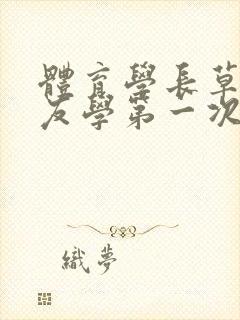 體育學長草
友學第一次
織夢